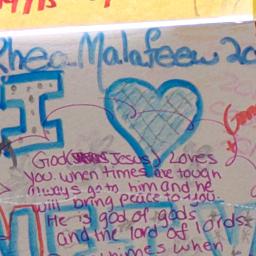 Rhea Malafeew 20
I
God Jesus Loves
you. when times are tough
always go to him and he
will bring peace to you.
He is god of gods
and the lord of lords
times when